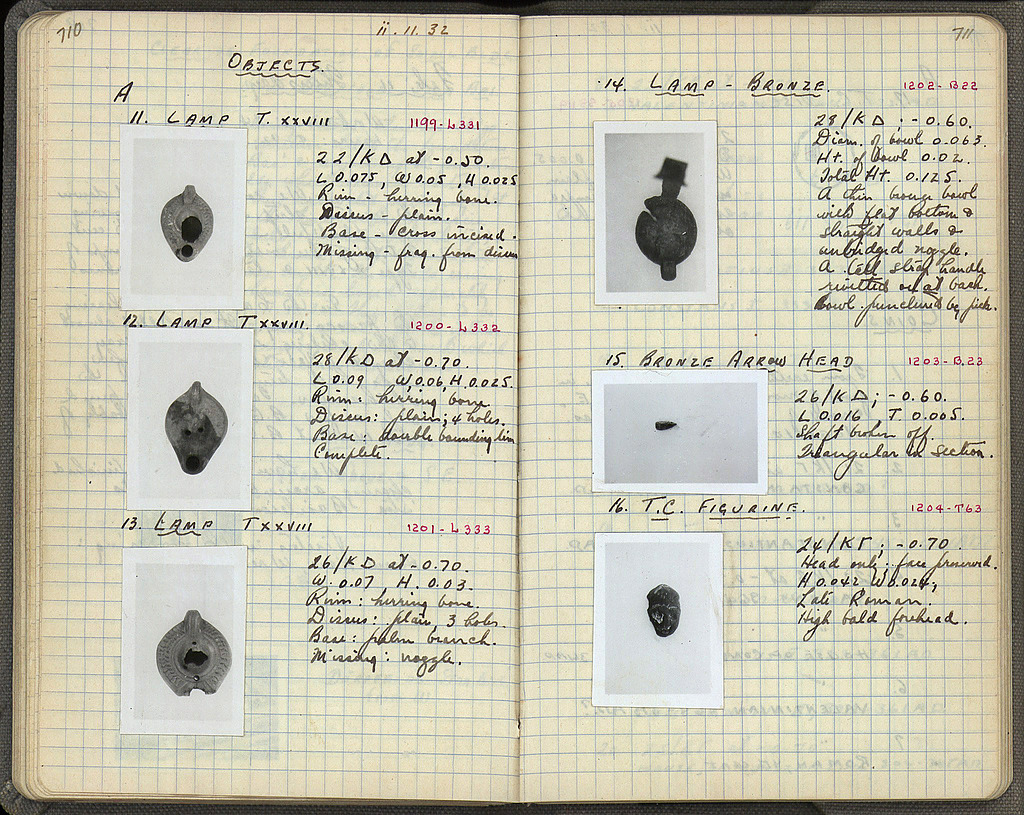 710
ii. 11. 32
OBJECTS.
A
11. LAMP T. XXVIII 1199-L331
22/KD at -0.50.
L 0.075, W 0.05, H 0.025
Rim - herring bone.
Discus - plain.
Base - cross incised.
Missing - frag. from discus
12. LAMP T XXVIII. 1200-L332
28/KD at -0.70.
L 0.09 W 0.06, H 0.025.
Rim: herring bone
Discus: plain; 4 holes.
Base: double bounding line
Complete.
13. LAMP T XXVIII 1201-L333
26/KD at -0.70.
W. 0.07 H. 0.03.
Rim: herring bone.
Discus: plain, 3 holes.
Base: palm branch.
Missing: nozzle.
711
14. LAMP - BRONZE. 1202-B22
28/KD; -0.60.
Diam. of bowl 0.063.
Ht. of bowl 0.02.
Total Ht. 0.125.
A thin bronze bowl
with flat bottom &
straight walls &
unbridged nozzle.
A tall strap handle
rivetted on at back.
Bowl punctured by pick.
15. BRONZE ARROW HEAD 1203-B.23
26/KD; -0.60.
L 0.016 T. 0.005.
Shaft broken off
Triangular in section.
16. T.C. FIGURINE. 1204-T63
24/KΓ; -0.70.
Head only: face preserved.
H 0.042 W 0.024;
Late Roman.
High bald forehead.